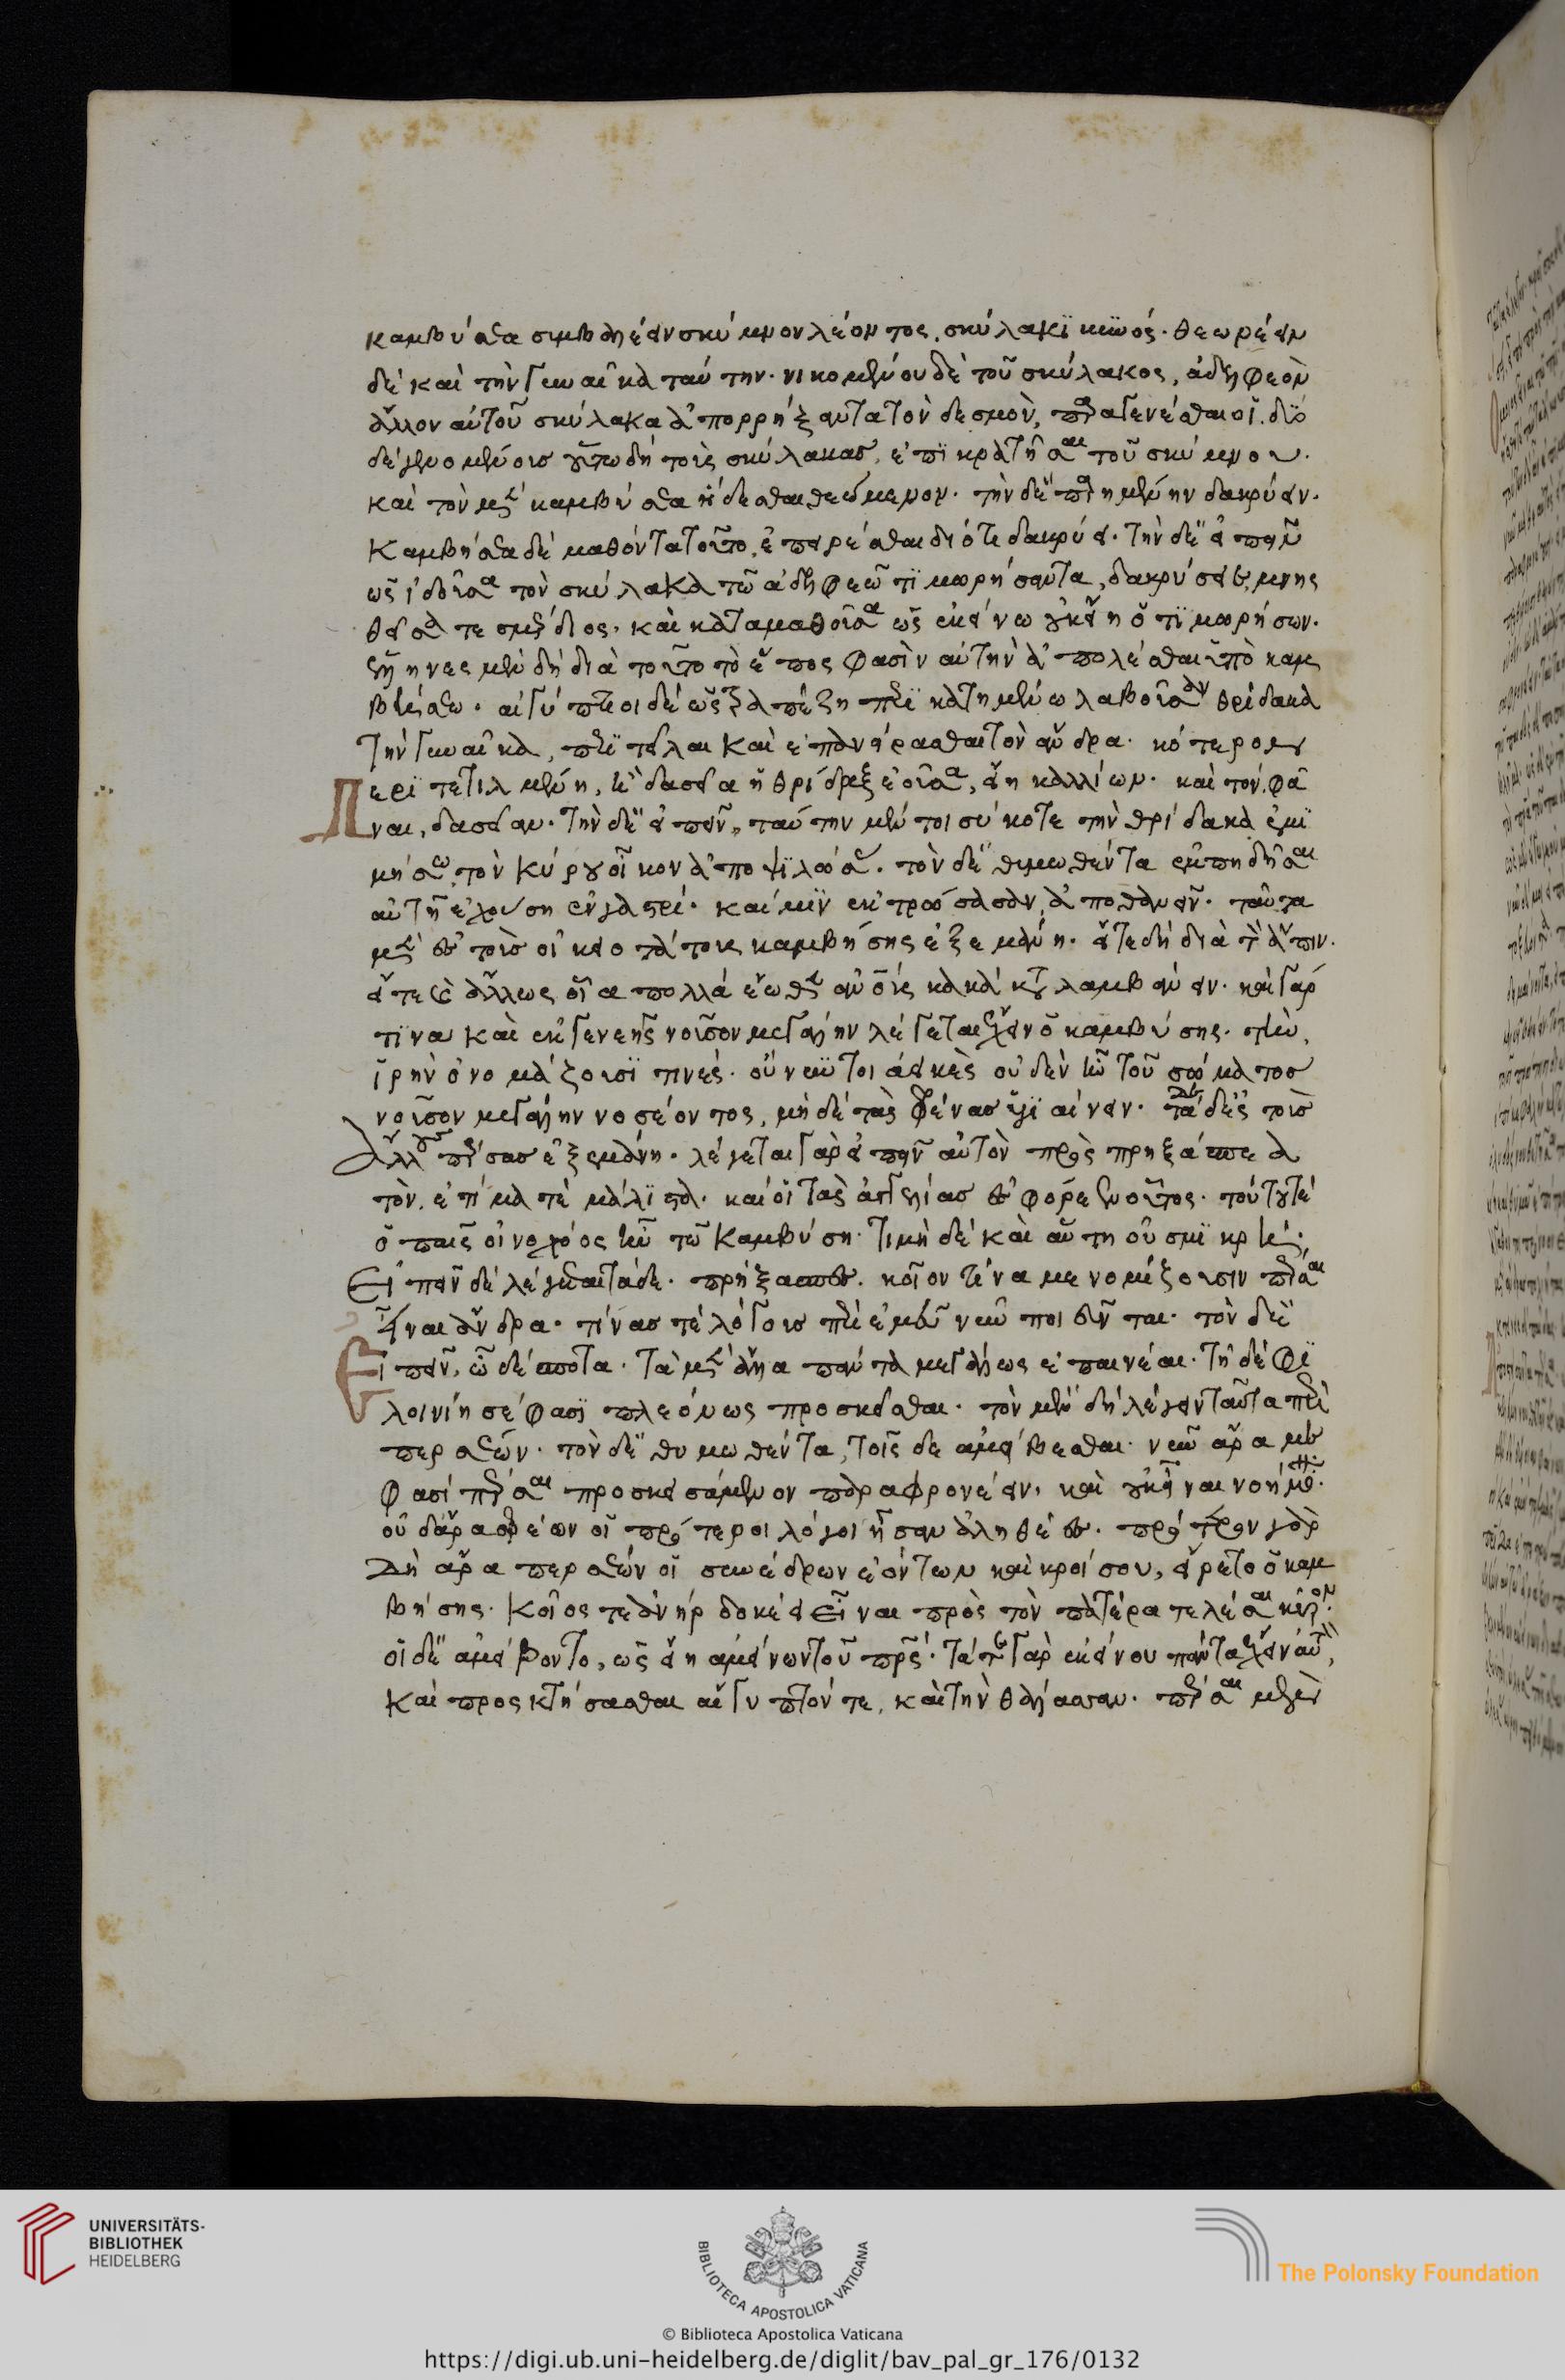 καμβύσεα συμβαλέειν σκύμνον λέοντος, σκύλακι κυνός. θεωρέειν
δὲ καὶ τὴν γυναῖκα ταύτην. νικομένου δὲ τοῦ σκύλακος, ἀδελφεὸν
ἄλλον αὐτοῦ σκύλακα ἀπορρήξαντα τὸν δεσμὸν, παραγενέσθαι οἱ. δύο
δὲ γενομένους οὕτω δὴ τοὺς σκύλακας, ἐπικρατῆσαι τοῦ σκύμνου.
καὶ τὸν μὲν καμβύσεα ἥδεσθαι θεώμενον. τὴν δὲ παρημένην δακρύειν.
Καμβήσεα δὲ μαθόντα τοῦτο, ἐπειρέσθαι διότι δακρύει. τὴν δὲ εἰπεῖν
ὡς ἰδοῦσα τὸν σκύλακα τῶ ἀδελφεῶ τιμωρήσαντα, δακρύσειε μνησ
θεῖσά τε σμέρδιος. καὶ καταμαθοῦσα ὡς ἐκείνω οὐκ εἴη ὁ τιμωρήσων.
ἕλληνες μὲν δὴ διὰ τοῦτο τὸ ἔπος φασὶν αὐτὴν ἀπολέσθαι ὑπὸ καμ
βύσεω. αἰγύπτιοι δὲ ὡς τραπέζη περικατημένω λαβοῦσαν θρίδακα
τὴν γυναῖκα, περιτῖλαι καὶ ἐπανείρασθαι τὸν ἄνδρα. κότερον
περιτετιλμένη, ἢ δασεῖα ἡ θρίδαξ ἐοῦσα, εἴη καλλίων. καὶ τὸν φά
ναι, δασεῖαν. τὴν δὲ εἰπεῖν, ταύτην μέν τοι σύ κοτε τὴν θρίδακα ἐμι
μήσω, τὸν κύρου οἶκον ἀποψιλώσας. τὸν δὲ θυμωθέντα ἐμπηδῆσαι
αὐτῆ ἐχούση ἐν γαστρί. καί μιν ἐκτρώσασαν, ἀποθανεῖν. ταῦτα
μὲν ἐς τοὺς οἰκειοτάτους καμβήσης ἐξεμάνη. εἴτε δὴ διὰ τὸν ἆπιν.
εἴτε καὶ ἄλλως οἷα πολλὰ ἔωθεν ἀνθρώποις κακὰ καταλαμβάνειν. καὶ γάρ
τινα καὶ ἐκ γενεῆς νοῦσον μεγάλην λέγεται ἔχειν ὁ καμβύσης. τὴν
ἱρὴν ὀνομάζουσί τινες. οὔ νύν τοι ἀεικὲς οὐδὲν ἦν τοῦ σώματος
νοῦσον μεγάλην νοσέοντος, μηδὲ τὰς φρένας ὑγιαίνειν. τάδε δ' ἐς τοὺς
ἄλλους πέρσας ἐξεμάνη. λέγεται γὰρ εἰπεῖν αὐτὸν πρὸς πρηξάσπεα
τὸν, ἐτίμα τὲ μάλιστα. καὶ οἱ τὰς ἀγγελίας ἐφόρεεν οὗτος. τούτου τὲ
ὁ παῖς οἰνοχόος ἦν τῶ Καμβύση. τιμὴ δὲ καὶ αὕτη οὐ σμικρή.
Εἰπεῖν δὲ λέγεται τάδε. πρήξασπες. κοῖόν τινα με νομίζουσιν πέρσαι
εἶναι ἄνδρα. τίνας τὲ λόγους περὶ ἐμεῦ νῦν ποιεῦνται. τὸν δὲ
Εἰπεῖν, ὦ δέσποτα. τὰ μὲν ἄλλα πάντα μεγάλως ἐπαινέαι. τῆ δὲ φι
λοινίη σέ φασι πλεόνως προσκεῖσθαι. τὸν μὲν δὴ λέγειν ταῦτα περὶ
περσέων. τὸν δὲ θυμωθέντα, τοῖς δε ἀμείβεσθαι. νῦν ἄρα με
φασὶ πέρσαι προσκείμενον παραφρονέειν, καὶ οὐκ εἶναι νοήμονα.
οὐδ' ἄρα σφέων οἱ πρότεροι λόγοι ἦσαν ἀληθέες. πρότερον γὰρ
δὴ ἄρα περσέων οἱ συνέδρων ἐόντων καὶ κροίσου, εἴρετο ὁ καμ
βήσης. Κοῖός τε ἀνὴρ δοκέει εἶναι πρὸς τὸν πατέρα τελέσαι κῦρον.
οἱ δὲ ἀμείβοντο, ὡς εἴη ἀμείνων τοῦ πατρός. τά τε γὰρ ἐκείνου πάντα ἔχειν αὐτὸν,
Καὶ προσκτήσασθαι αἴγυπτόν τε, καὶ τὴν θάλασσαν. πέρσαι μὲν
UNIVERSITÄTS-
BIBLIOTHEK
HEIDELBERG
BIBLIOTECA APOSTOLICA VATICANA
The Polonsky Foundation
© Biblioteca Apostolica Vaticana
https://digi.ub.uni-heidelberg.de/diglit/bav_pal_gr_176/0132